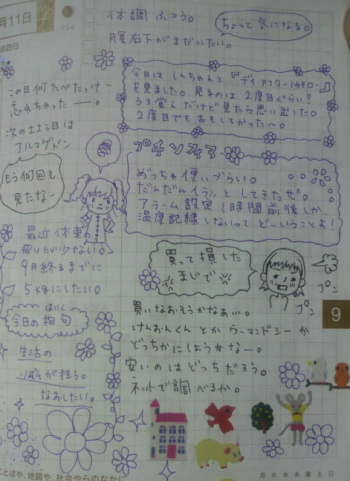 月11日
体調 ふつう。
腹右下がまだいたい。
ちょっと気になる。
この日何たべたっけー
忘れちゃったーー。
もう何回も
見たなー
今日はしんちゃんと『デイアフタートゥモロー』
を見ました。見るのは2度目ぐらい?
うろ覚えだけど見たら思い出した。
2度でもおもしろかったー。
めっちゃ使いづらい。
だんだんイラっとしてきたぜ。
アラーム設定1時間前後しか、
温度記録しないってどーいうことよ!
買って損した
まじで
プン
プン
最近体重の
減りが少ない。
9月終るまでに
kgにしたい
はいく
今日の俳句
生活の
乱れが
なおしたい。
買いなおそうかなぁ…。
けんおんくんとかウーマンドシーか
どっちかにしようかなー。
安いのはどっちだろう。
ネットで調べるか。
9